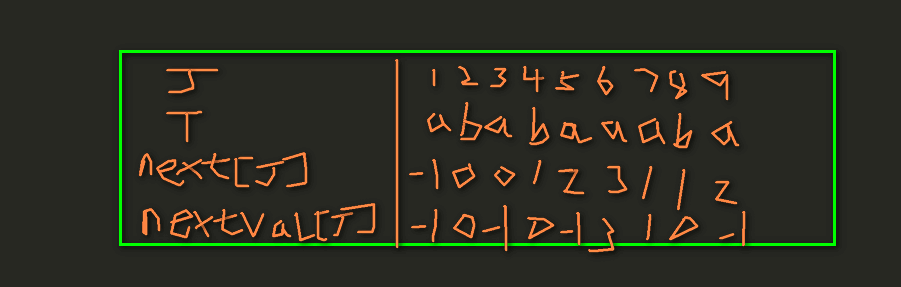 J 1 2 3 4 5 6 7 8 9
T a b a b a a a b a
next[J] -1 0 0 1 2 3 1 1 2
nextval[J] -1 0 -1 0 -1 3 1 0 -1